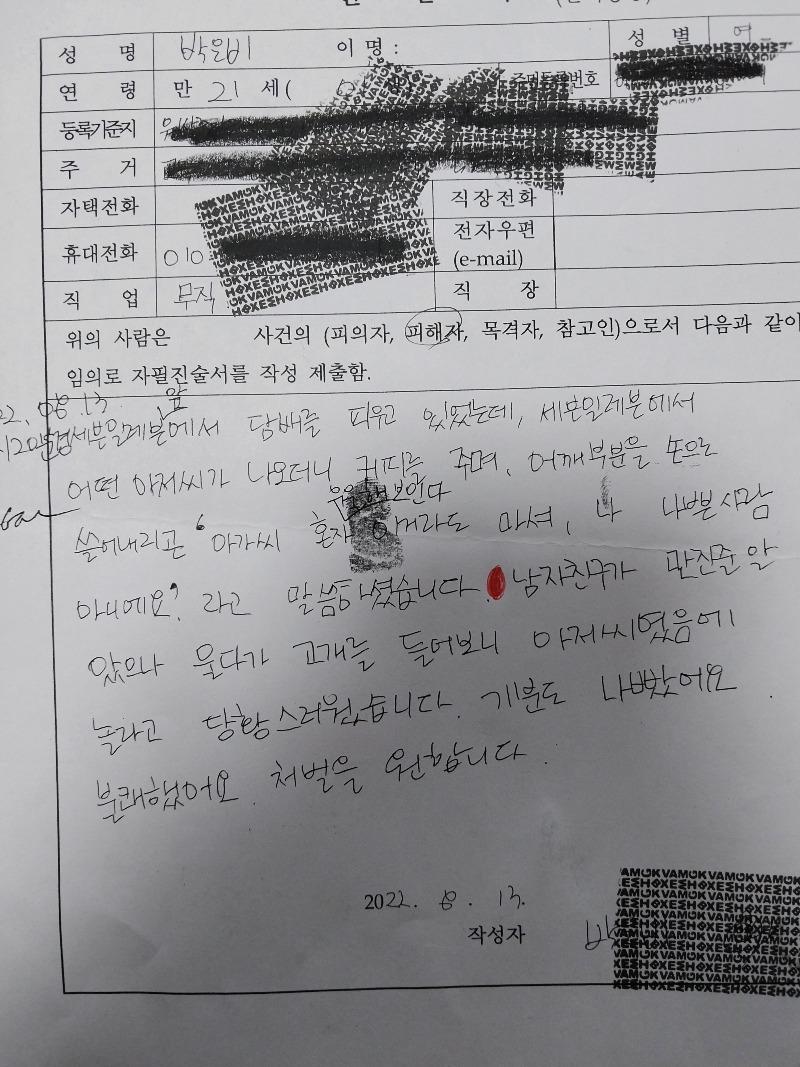 성 명 박은비 이 명 : 성 별 여
연 령 만 21 세( 주민등록번호
등록기준지
주 거
자택전화 직장전화
휴대전화 010 전자우편
(e-mail)
직 업 무직 직 장
위의 사람은 사건의 (피의자, 피해자, 목격자, 참고인)으로서 다음과 같이
임의로 자필진술서를 작성 제출함.
22. 08. 13. 앞
세븐일레븐에서 담배를 피우고 있었는데, 세븐일레븐에서
어떤 아저씨가 나오더니 커피를 주며, 어깨부분을 손으로
쓸어내리곤 '아가씨 혼자 이거라도 마셔, 나 나쁜사람
아니에요' 라고 말씀하셨습니다. 남자친구가 만진줄 알
았으나 울다가 고개를 들어보니 아저씨였음에
놀라고 당황스러웠습니다. 기분도 나빴어요.
불쾌했어요. 처벌을 원합니다.
2022. 8. 13.
작성자 박